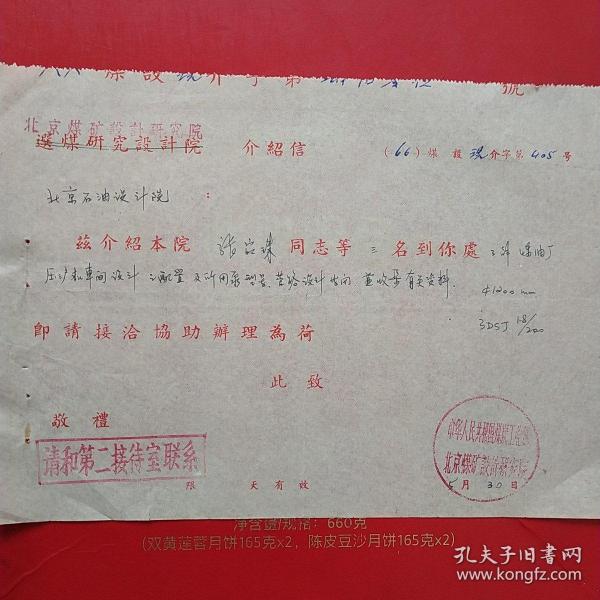 煤設 介字第 號
北京煤矿設計研究院
選煤研究設計院 介紹信 （66）煤設 現介字第405号
北京石油设计院：
茲介紹本院 同志等三名到你處了解煤油厂
压沪机車間设计之配置及所用泵型号、管路设计 並收集有关资料.
φ1200mm
3DSJ 18/200
卽請接洽協助辦理為荷
此致
敬禮
请和第二接待室联系
中华人民共和国煤炭工业部
北京煤矿設計研究院
限 天有效 5月30日
净含量/规格：660克
(双黄莲蓉月饼165克x2，陈皮豆沙月饼165克x2)
孔夫子旧书网
www.kongfz.com